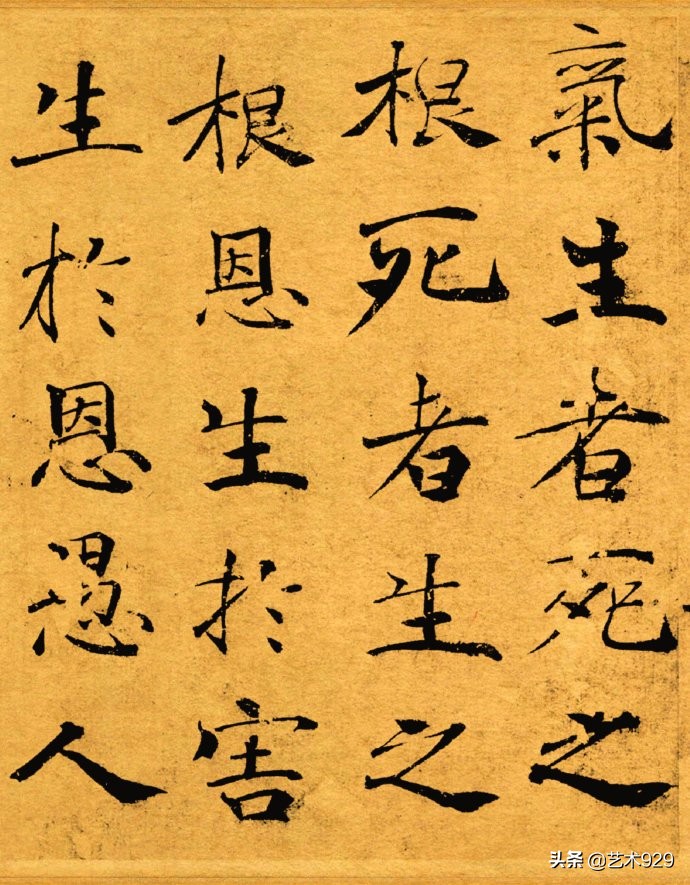 氣生者死之
根死者生之
根恩生於害
生於恩愚人
头条 @艺术929